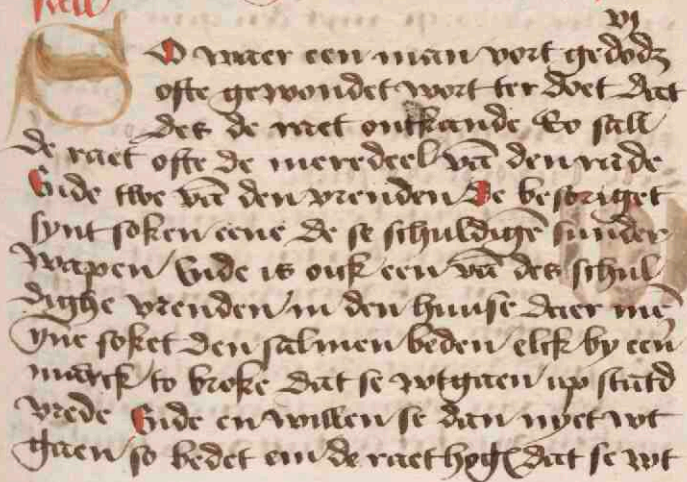 vi
SO waer een man wort gedodz
ofte gewondet wort ter doet dat
des de raet onthande So sall
de raet ofte de meredeel vā den rade
Ende twe vā den vrenden De besoriget
synt soken ene de se schuldigē sunder
wapen Ende is ouk een vā des schul
dighe vrenden in den huuse daer mē
yne soket den salmen beden elck by een
marck to broke dat se wtgaen up stad
vrede Ende en willen se dan nyet wt
gaen so bedet em de raet hog dat se wt